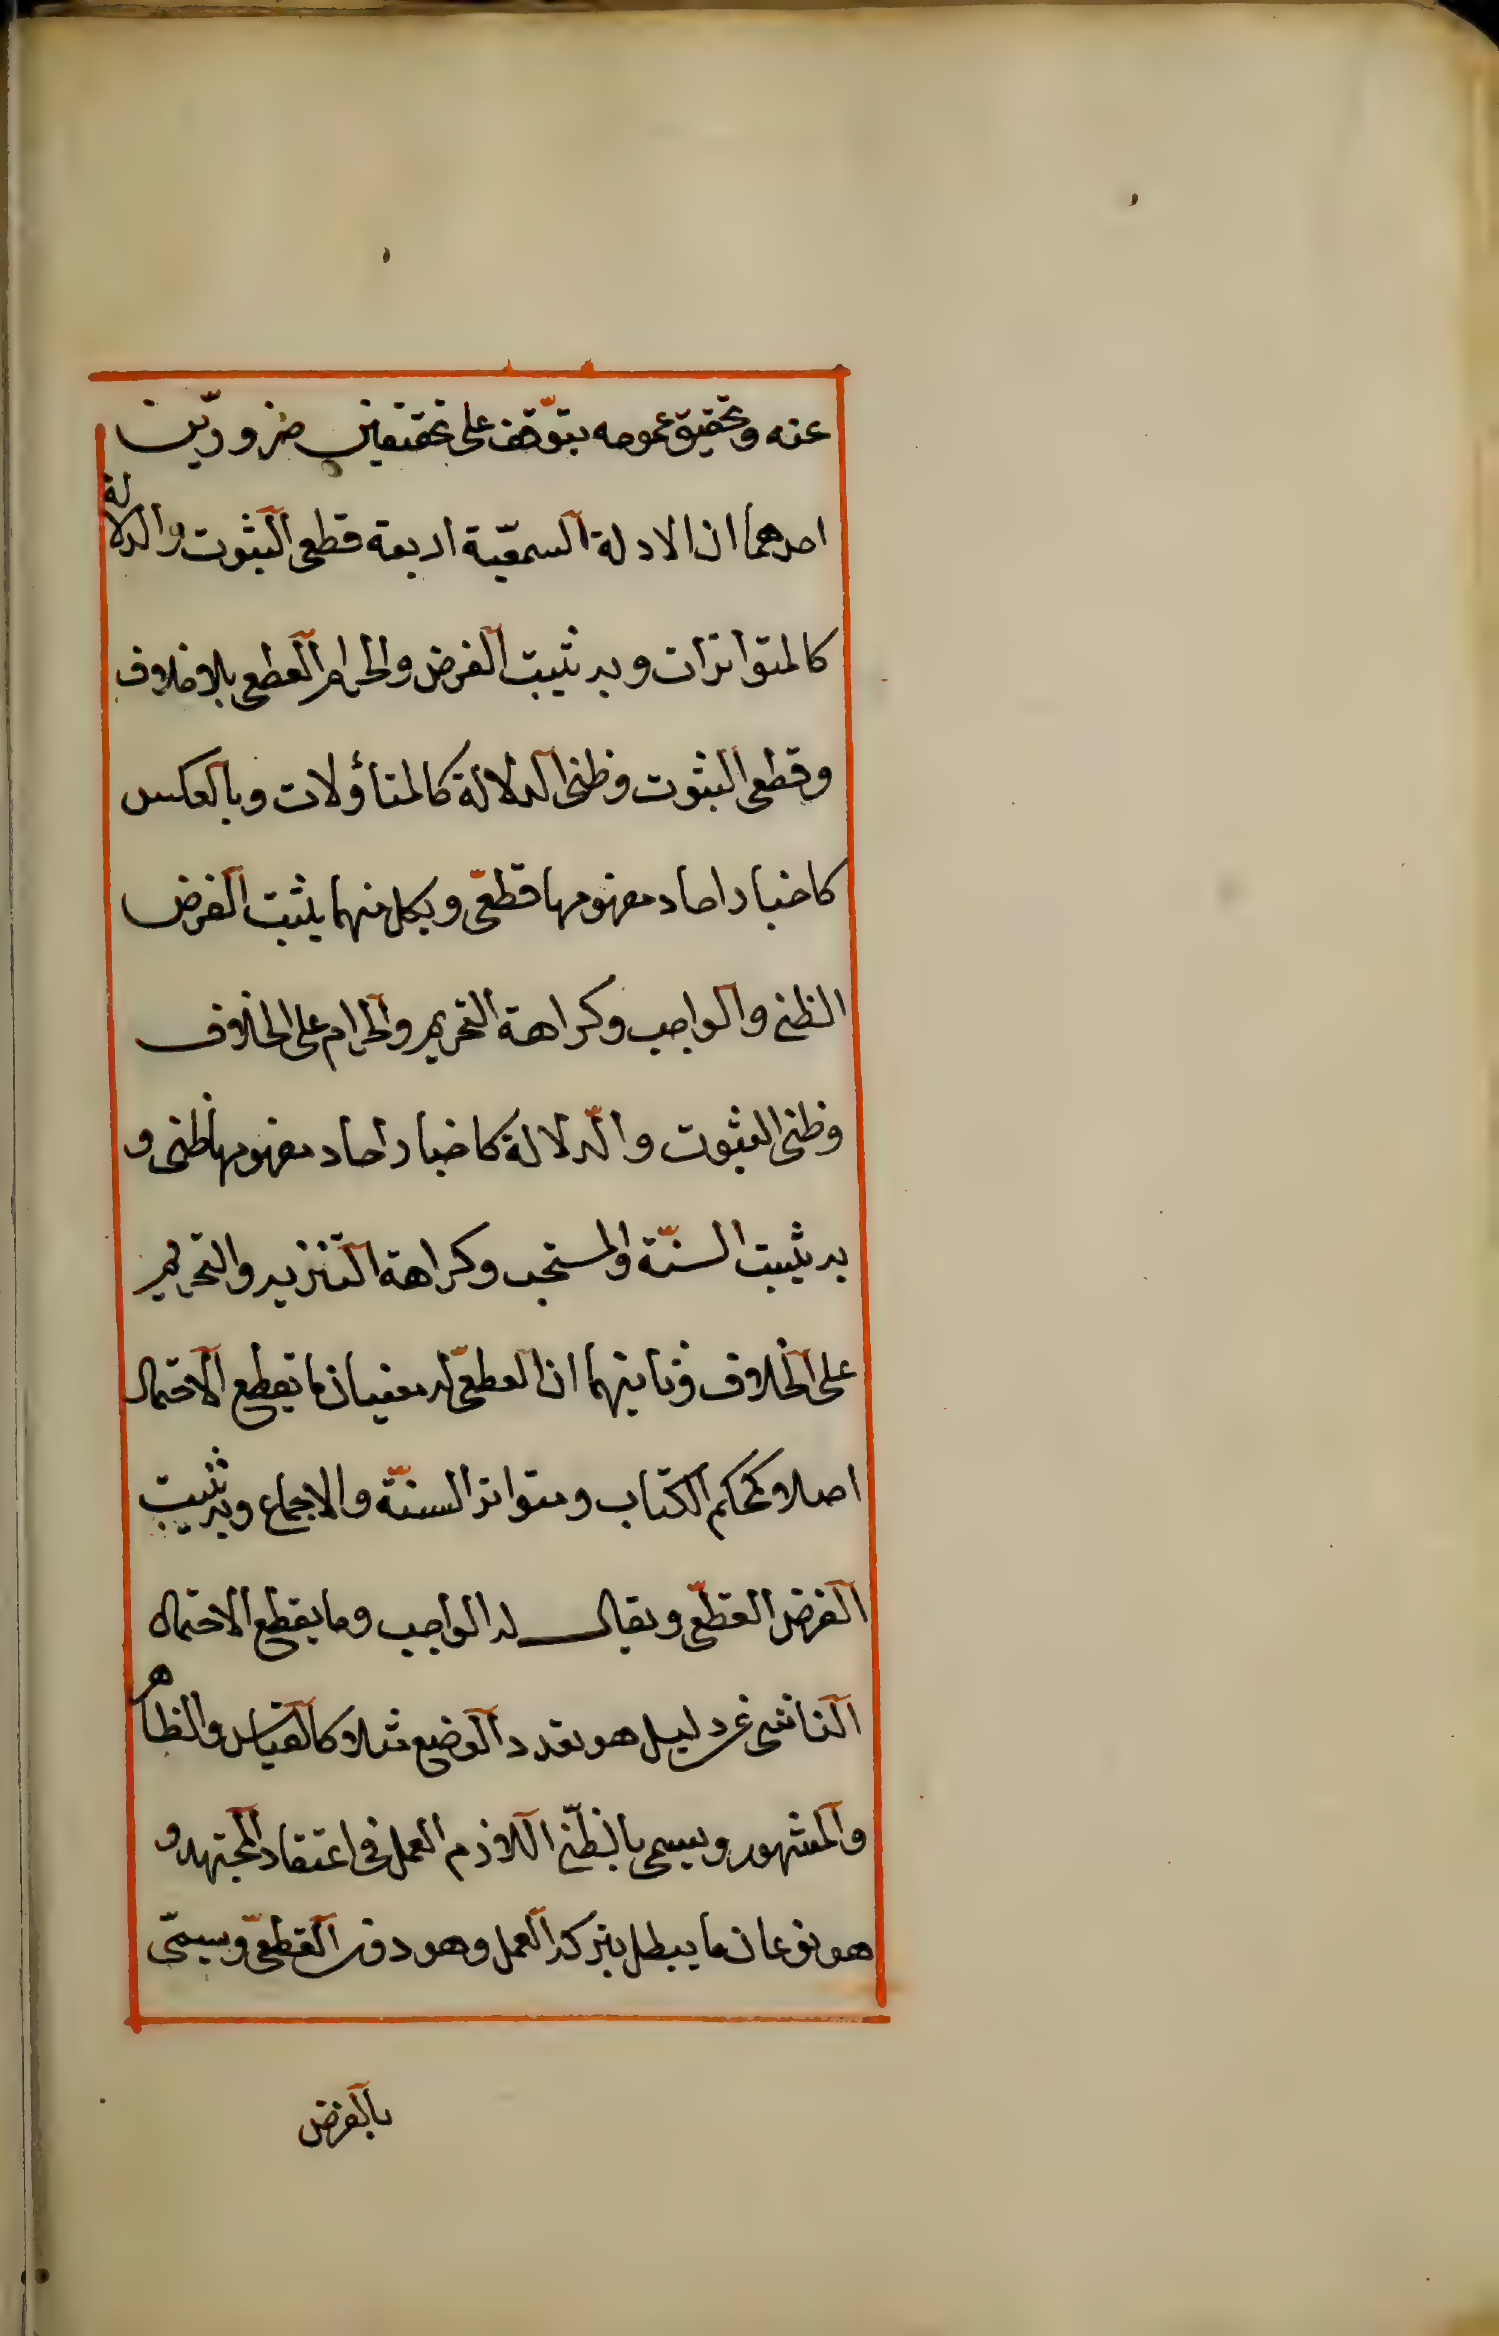 عنه وتحقيق عمومه يتوّقف على تحقيقين ضروريّين
احدهما ان الادلة السمعيّة اربعة قطعى الثبوت والدلالة
كالمتواترات وبه يثبت الفرض والحرام القطعى بلا خلاف
وقطعى الثبوت وظنى الدلالة كالمتأولات وبالعكس
كاخبار احاد مفهومها قطعىّ وبكل منهما يثبت الفرض
الظنى والواجب وكراهة التحريم والحرام على الخلاف
وظنى الثبوت والدّلالة كاخبار احاد مفهومها ظنى و
به يثبت السنّة والمستحب وكراهة التنزيه والتحريم
على الخلاف وثانيهما ان القطعىّ له معنيان ما يقطع الاحتمال
اصلا كمحكم الكتاب ومتواتر السنّة والاجماع وبه يثبت
الفرض القطعىّ ويقال له الواجب وما يقطع الاحتمال
الناشى عن دليل هو تعدد الوضع مثلا كالقياس والظاهر
والمشهور ويسمى بالظنّى اللازم العمل فى اعتقاد المجتهد و
هو نوعان ما يبطل بتركه العمل وهو دون القطعىّ ويسمّى
بالفرض